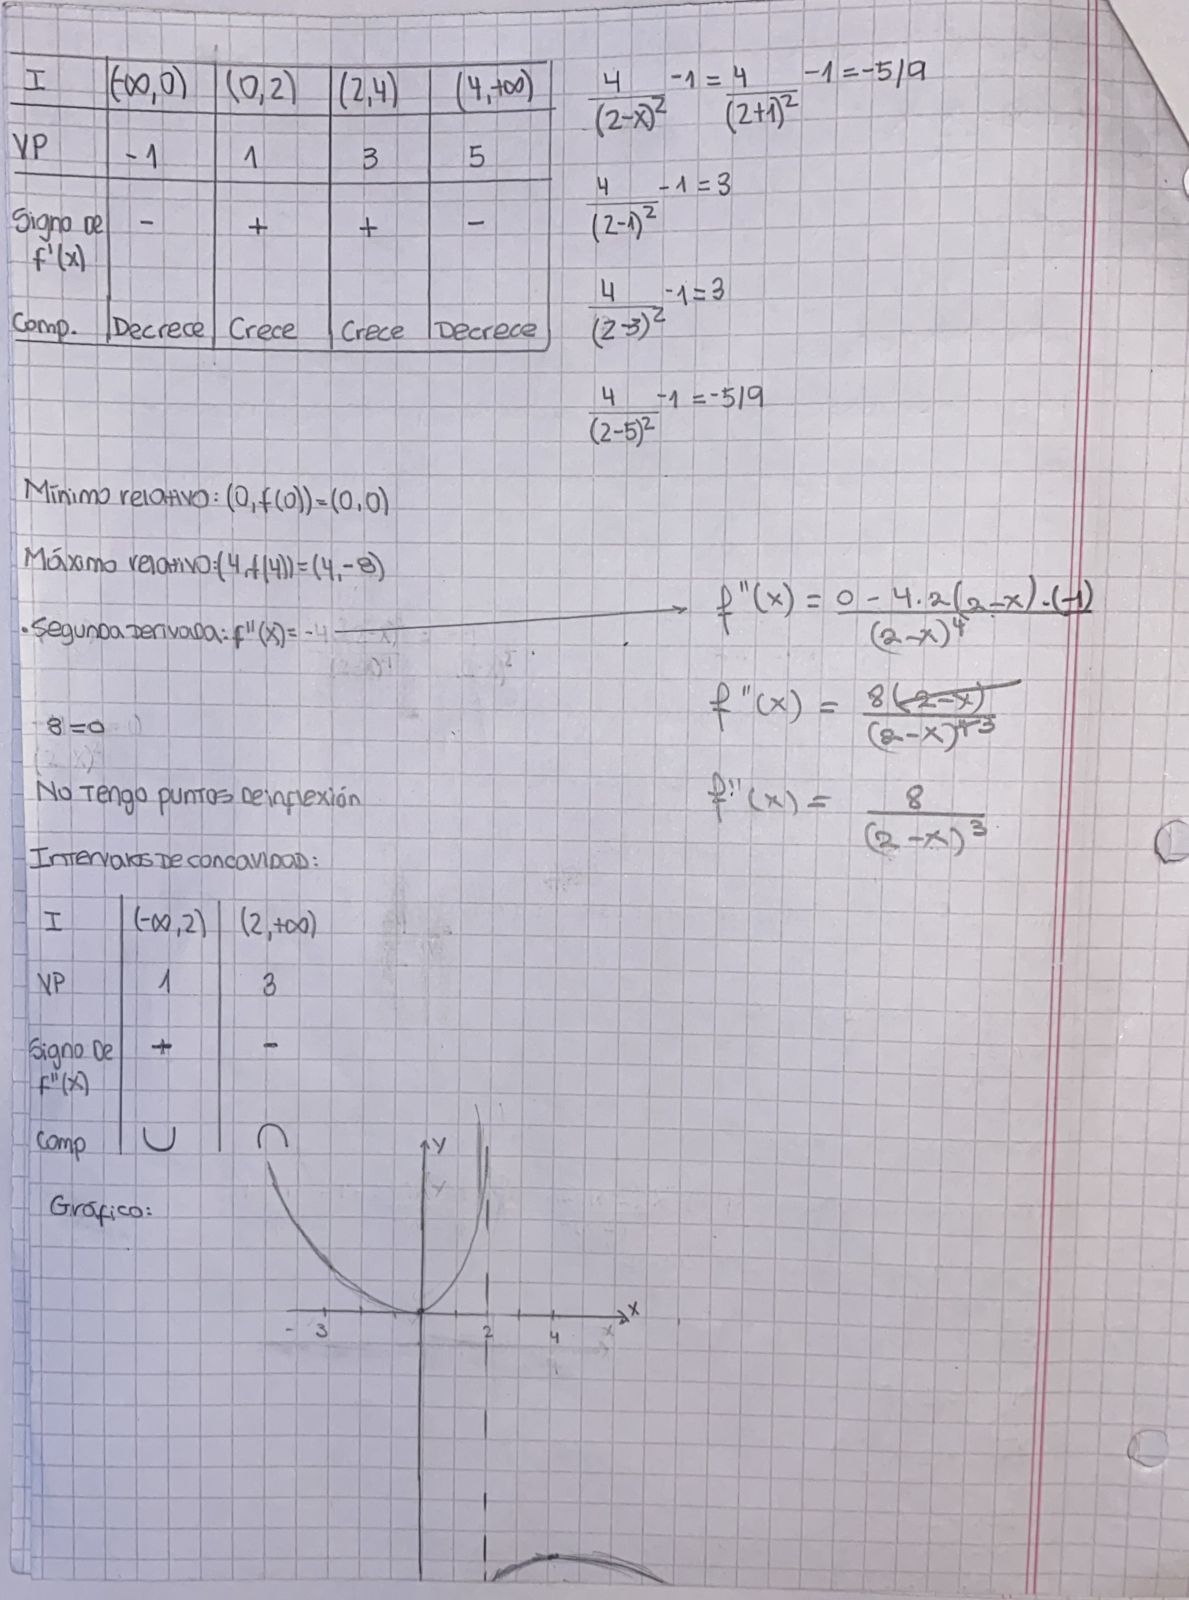 I (-∞,0) (0,2) (2,4) (4,+∞)
VP -1 1 3 5
Signo De f'(x) - + + -
Comp. Decrece Crece Crece Decrece
4/(2-x)² -1 = 4/(2+1)² -1 = -5/9
4/(2-1)² -1 = 3
4/(2-3)² -1 = 3
4/(2-5)² -1 = -5/9
Mínimo relativo: (0, f(0)) = (0,0)
Máximo relativo: (4, f(4)) = (4,-8)
. Segunda Derivada: f''(x) = -4
f''(x) = 0 - 4.2(2-x).(-1)/(2-x)⁴
f''(x) = 8(2-x)/(2-x)⁴ ³
8=0
No Tengo puntos De inflexión
f''(x) = 8/(2-x)³
Intervalos De concavidad:
I (-∞,2) (2,+∞)
VP 1 3
Signo De f''(x) + -
Comp ∪ ∩
Gráfico:
y
y
x
x
-3 2 4